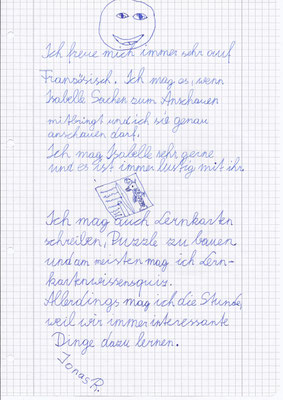 Ich freue mich immer sehr auf
Französisch. Ich mag es, wenn
Isabelle Sachen zum Anschauen
mitbringt und ich sie genau
anschauen darf.
Ich mag Isabelle sehr gerne
und es ist immer lustig mit ihr.
Ich mag auch Lernkarten
schreiben, Puzzle zu bauen
und am meisten mag ich Lern-
kartenwissensquiz.
Allerdings mag ich die Stunde,
weil wir immer interessante
Dinge dazu lernen.
Jonas R.